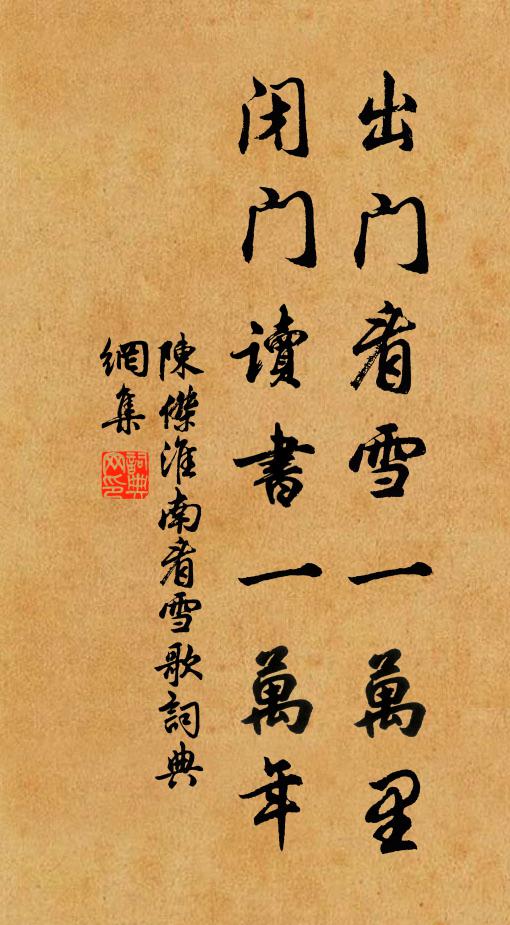 出门看雪一萬里
闭门读書一萬年
陳傑淮南看雪歌詞典
網集
詞典网印